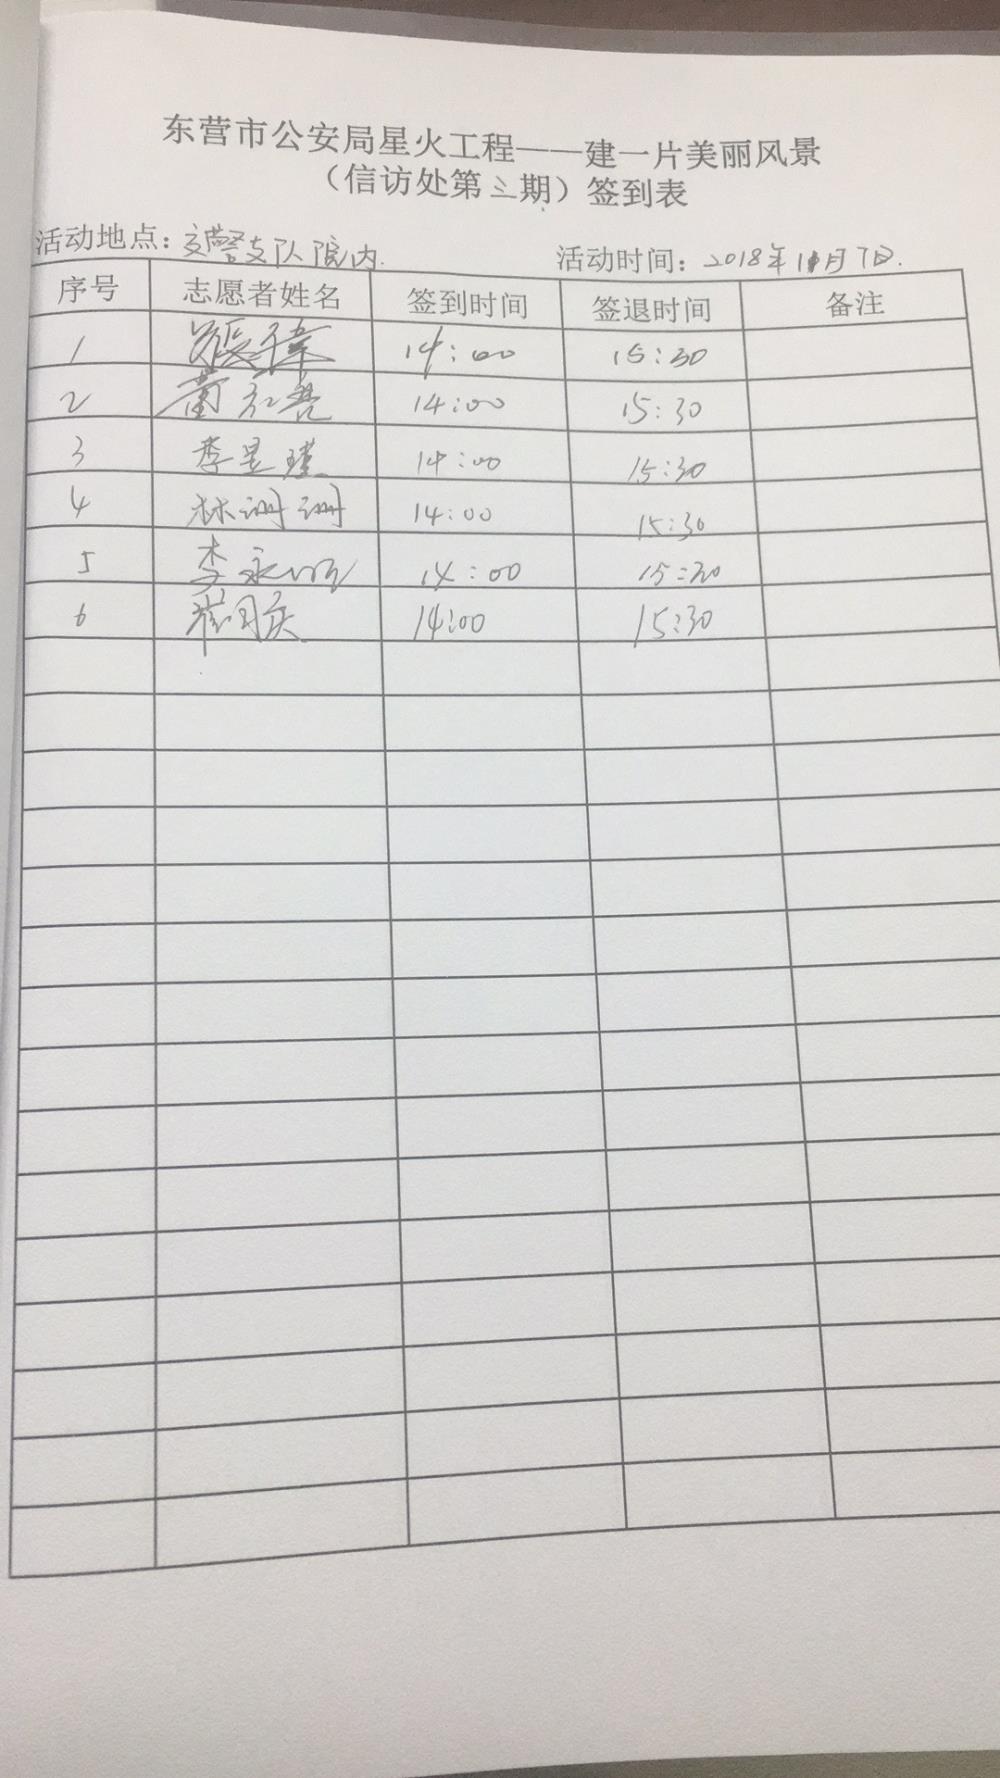 东营市公安局星火工程——建一片美丽风景
（信访处第三期）签到表
活动地点：交警支队院内. 活动时间：2018年11月7日.
序号 志愿者姓名 签到时间 签退时间 备注
1 张伟 14:00 15:30
2 14:00 15:30
3 李昱瑾 14:00 15:30
4 林珊珊 14:00 15:30
5 李永 14:00 15:30
6 崔同庆 14:00 15:30